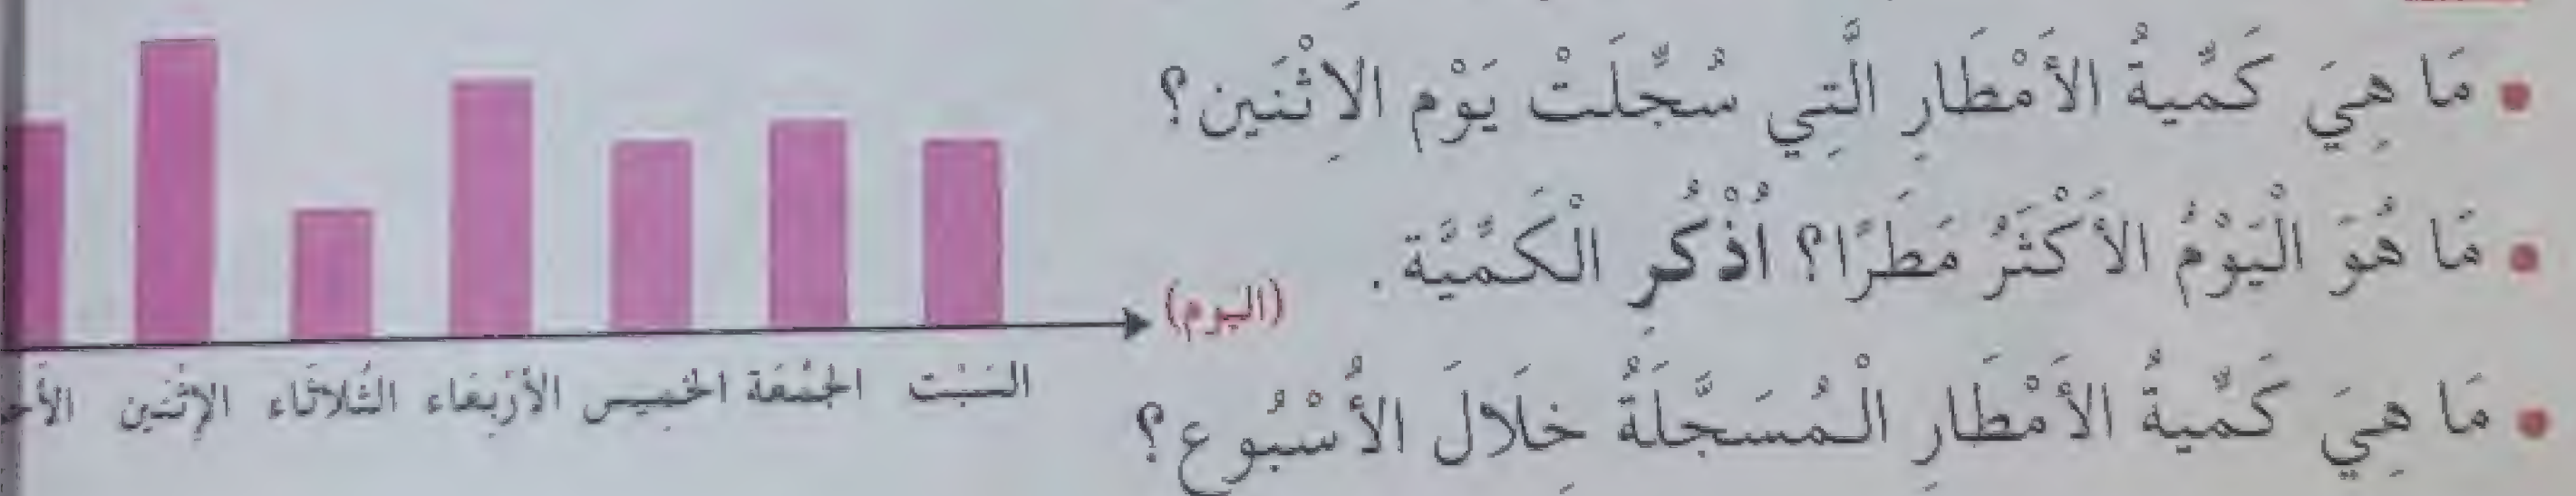 • مَا هِيَ كَمِّيةُ الأَمْطَارِ الَّتِي سُجِّلَتْ يَوْم الاِثْنَين؟
• مَا هُوَ الْيَوْمُ الأَكْثَرُ مَطَرًا؟ اُذْكُرِ الْكَمِّيَّة.
• مَا هِيَ كَمِّيةُ الأَمْطَارِ الْمُسَجَّلَةُ خِلَالَ الأُسْبُوع؟
(اليوم)
الإثْنَين الثُّلاثَاء الأَرْبِعَاء الخَمِيس الجُمُعَة السَبْت